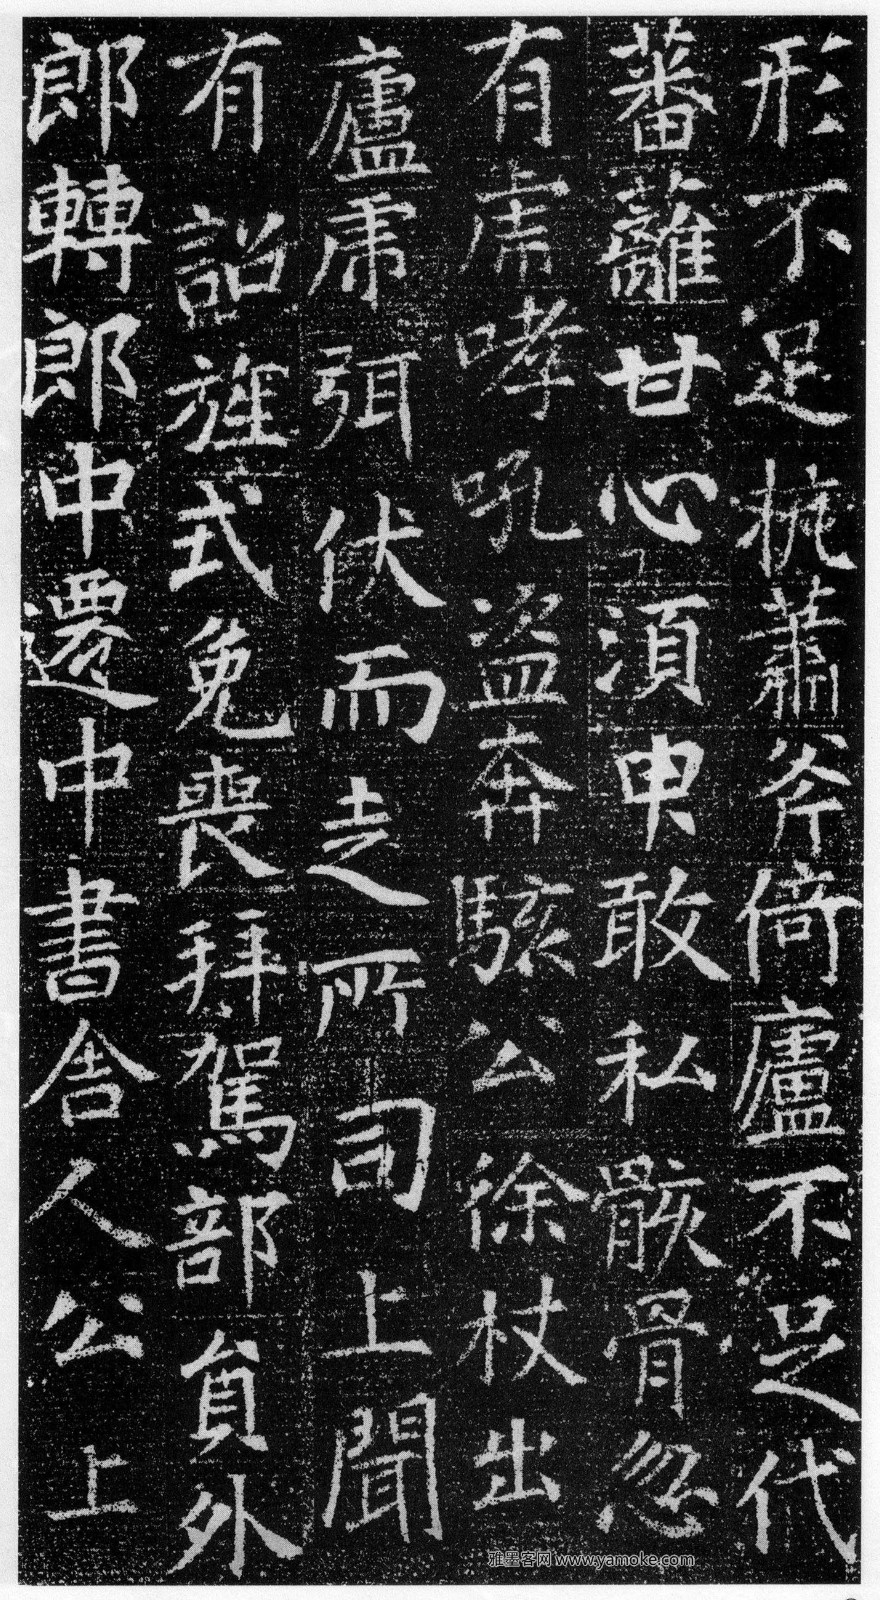 形不足梳蕭斧倚廬不足代
蕃蘺甘心須申敢私骸骨忽
有虎哮吼盜奔駭公徐杖出
廬虎弭伏而走所司上聞
有詔旌式免喪拜駕部員外
郎轉郎中遷中書舍人公上
雅墨客网 www.yamoke.com